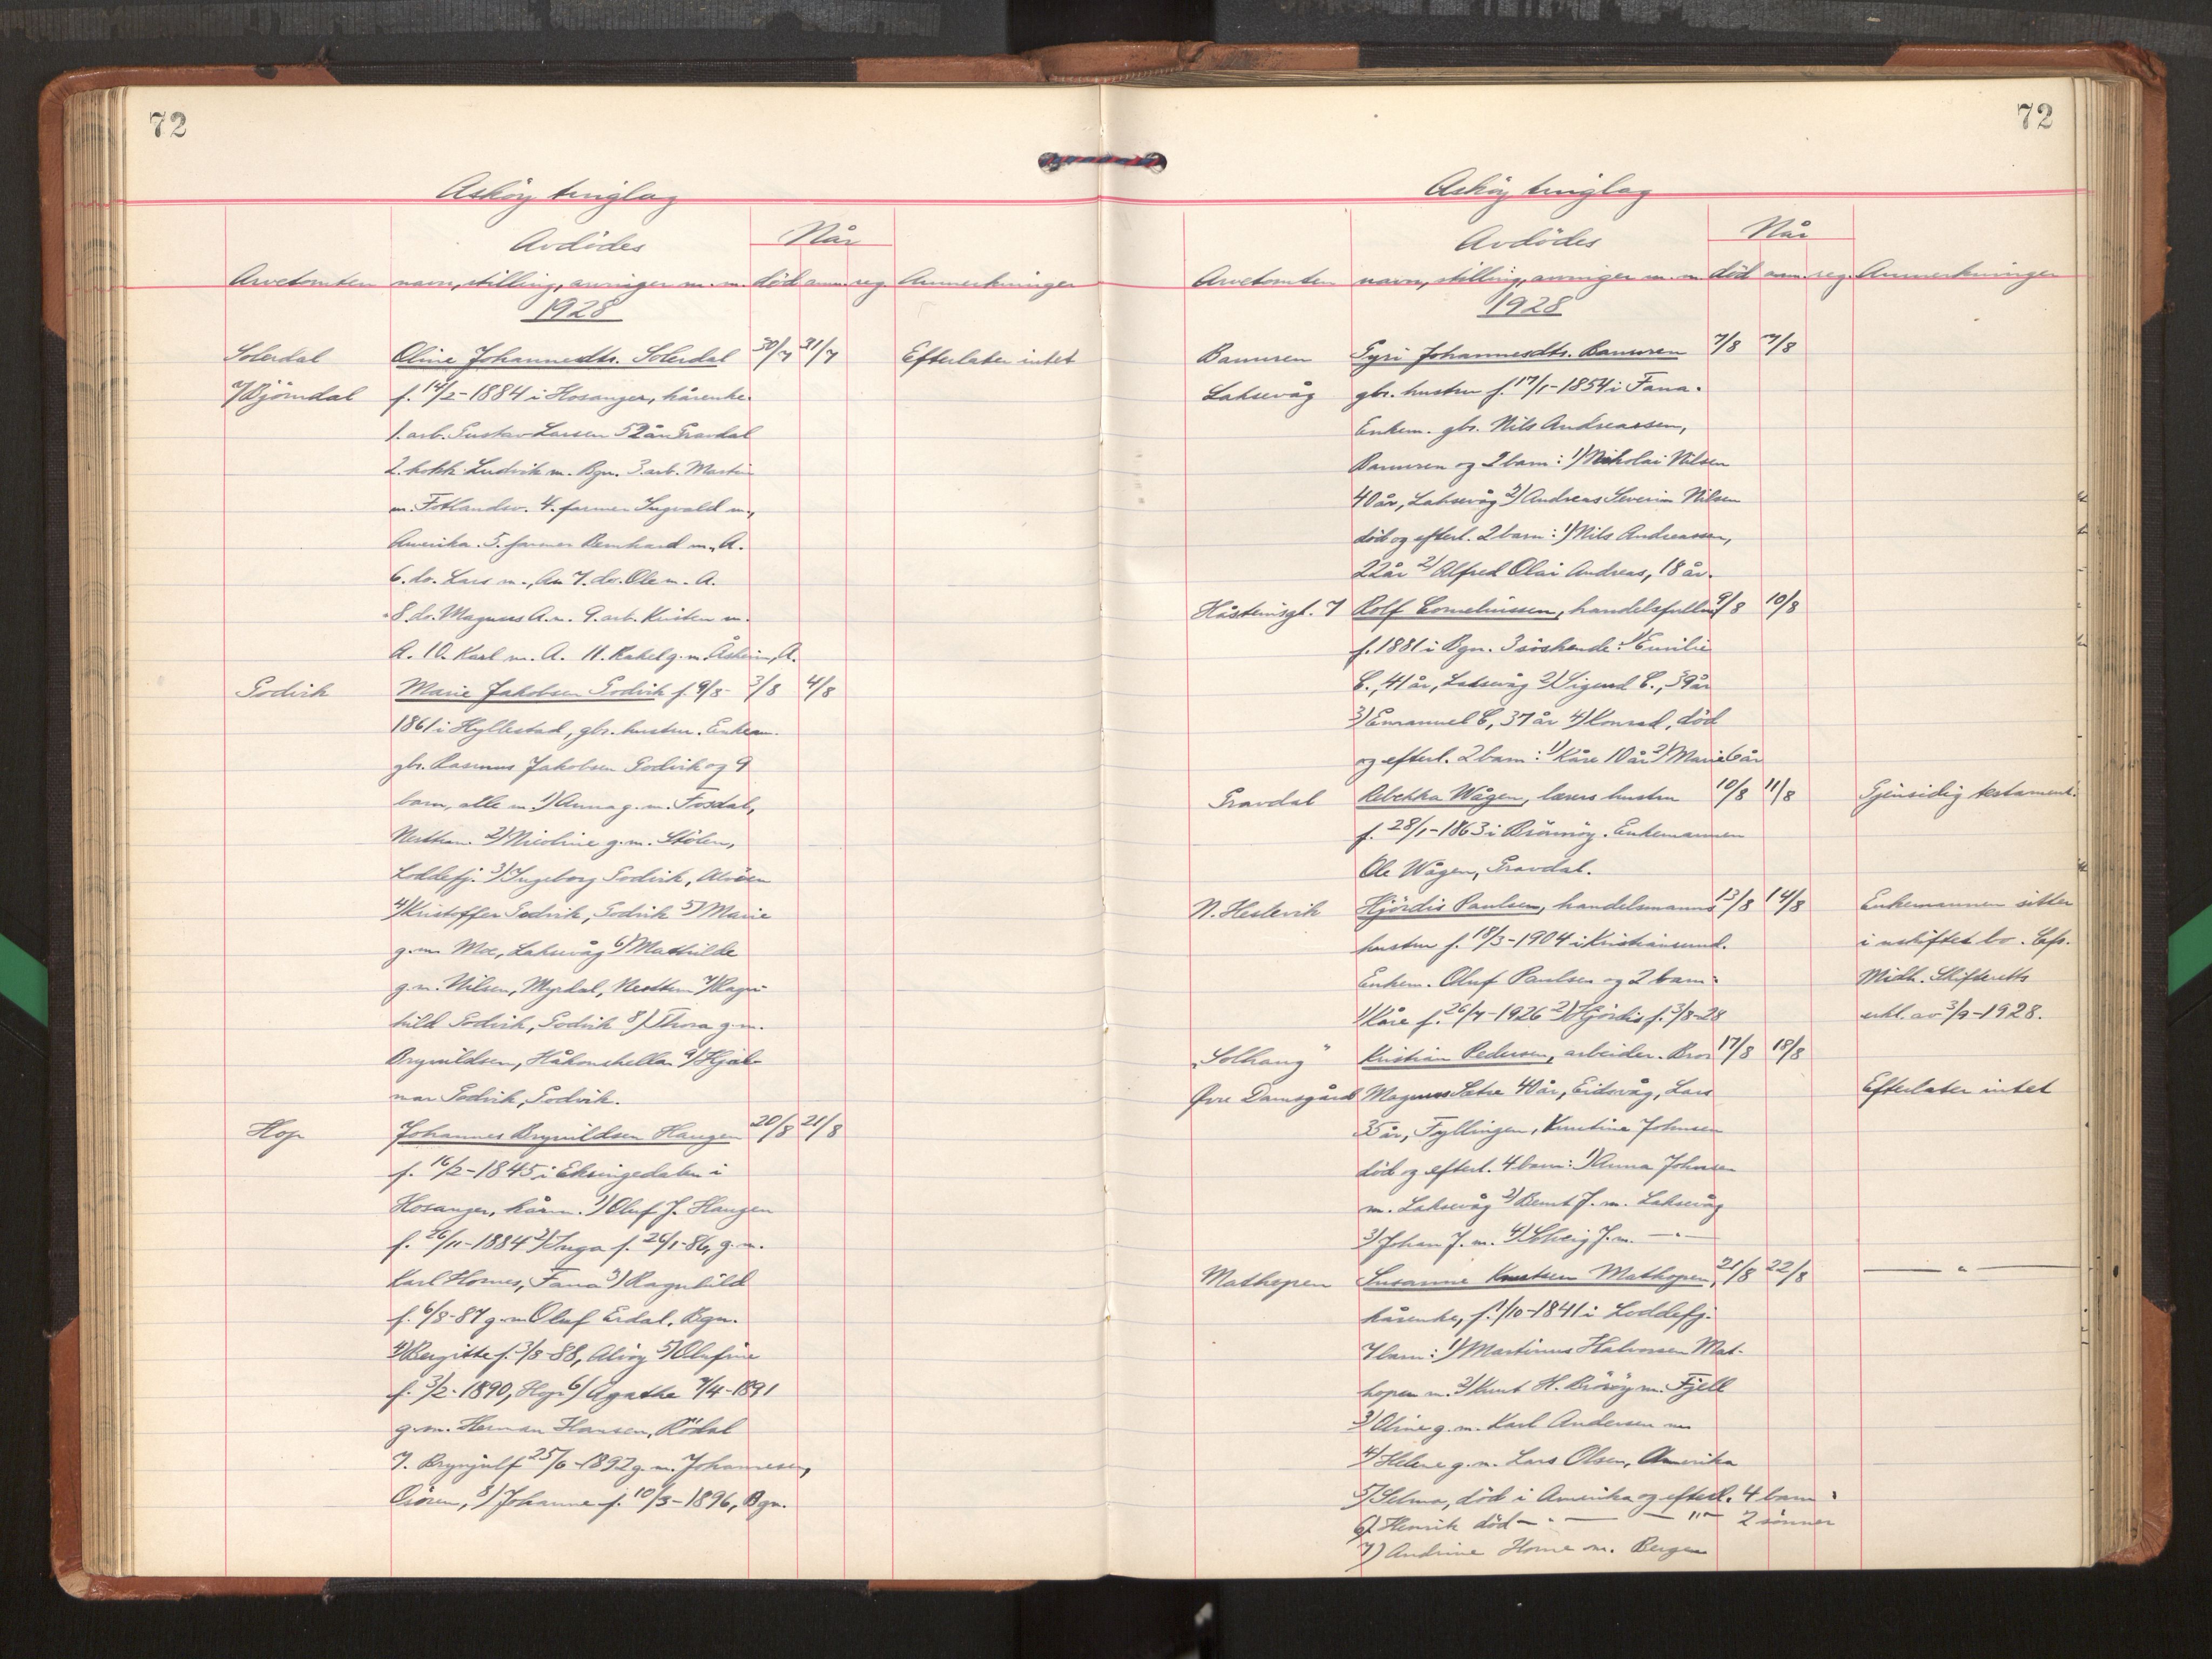 72
Askøy tinglag
Avdødes
Når
Arvetomten navn, stilling, arvinger m.m. død anm. reg. Anmerkninger
1928
Solerdal Oline Johannesdtr. Solerdal 30/7 31/7 Efterlater intet
f. 14/2-1884 i Hosanger, kårenke.
1. arb. Gustav Larsen 52 år Gravdal
2. kokk Ludvik m. Bgn. 3. arb. Martin
m. 4. farmer Ingvald m.,
Amerika. 5. farmer Bernhard m., A.
6. do. Lars m., Am 7. do. Ole m. A.
8. do. Magnus A. m. 9. arb. Kristen m.
A. 10. Karl m. A. 11. Rakel g.m. Åsheim, A.
Godvik Marie Jakobsen Godvik f. 9/8- 3/8 4/8
1861 i Hyllestad, gbr. hustru. Enkem.
gbr. Rasmus Jakobsen Godvik og 9
barn, alle m. 1) Anna g.m. Fosdal,
Nesttun. 2) Nicoline g.m. Stølen,
Loddefj. 3) Ingeborg Godvik, Alvøen
4) Kristoffer Godvik, Godvik 5) Marie
g.m. Moe, Laksevåg 6) Mathilde
g.m. Nilsen, Myrdal, Nesttun 7) Ragn-
hild Godvik, Godvik 8) Thora g.m.
Brynildsen, Håkonshella 9) Hjal-
mar Godvik, Godvik.
Hop Johannes Brynildsen Haugen 20/8 21/8
f. 16/2-1845 i Eksingedalen i
Hosanger, kårm. 1) Oluf J. Haugen
f. 26/11-1884 2) Inga f. 26/1-86, g.m.
Karl Hornes, Fana 3) Ragnhild
f. 6/8-87 g.m. Oluf Erdal, Bgn.
4) Bergitte f. 3/8-88, Alvøy 5) Olufine
f. 3/2-1890, Hop 6) Agathe 7/4-1891
g.m. Herman Hansen, Rödal
7. Brynjulf 25/6-1892 g.m. Johannesen,
8) Johanne f. 10/3-1896, Bgn.
72
Askøy tinglag
Avdødes
Når
Arvetomten navn, stilling, arvinger m.m. død anm. reg. Anmerkninger
1928
Banuren Gyri Johannesdtr. Banuren 7/8 7/8
Laksevåg gbr. hustru f. 17/1-1854 i Fana.
Enkem. gbr. Nils Andreassen,
Banuren og 2 barn: 1) Nikolai Nilsen
40 år, Laksevåg 2) Andreas Severin Nilsen
død og efterl. 2 barn: 1) Nils Andreassen,
22 år 2) Alfred Olai Andreas, 18 år.
Håsteinsgt. 7 Rolf Corneliussen, handelsfullm. 9/8 10/8
f. 1881 i Bgn. 3 søskende: 1) Emilie
C., 41 år, Laksevåg 2) Sigurd C., 39 år
3) Emanuel C, 37 år 4) Konrad, død
og efterl. 2 barn: 1) Kåre 10 år 2) Marie 6 år
Gravdal Rebekka Wågen, lærers hustru 10/8 11/8 Gjensidig testament.
f. 28/1-1863 i Brönnöy. Enkemannen
Ole Wågen, Gravdal.
N. Hestevik Hjørdis Paulsen, handelsmanns 13/8 14/8 Enkemannen sitter
hustru f. 18/3-1904 i Kristiansund. i uskiftet bo. Cfr.
Enkem. Oluf Paulsen og 2 barn: Midh. Skifteretts
1) Kåre f. 26/7-1926 2) Hjørdis f. 3/8-28 utkl. av 3/9-1928.
„Solhaug" Kristian Pedersen, arbeider. Bror 17/8 18/8
Øvre Damsgård Magnus Sætre 40 år, Eidsvåg, Lars Efterlater intet
35 år, Fyllingen, Knutine Johnsen
død og efterl. 4 barn: 1) Anna Johnsen
m. Laksevåg 2) Bernt J. m. Laksevåg
3) Johan J. m. 4) Solveig J. m. — " —
Mathopen Susanne Knutsen Mathopen, 21/8 22/8 — " —
kårenke, f. 1/10-1841 i Loddefj.
7 barn: 1) Martinus Halvorsen Mat-
hopen m. 2) Knut H. m. Fjell
3) Oline g.m. Karl Andersen m
4) Helene g.m. Lars Olsen, Amerika
5) Selma, død i Amerika og efterl. 4 barn.
6) Henrik død — " — — " — 2 sønner
7) Andrine Horne m. Bergen